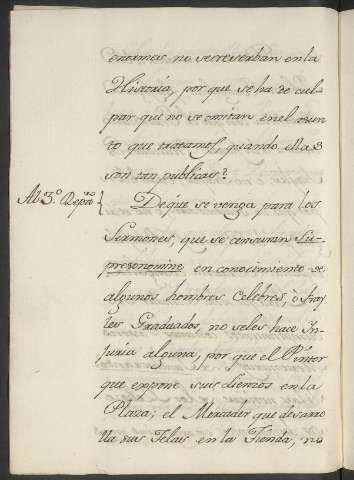 enormes no se reserban en la
Historia, por que se ha de cul-
par que no se omitan en el asun-
to que tratamos, quando ellas
son tan publicas?
Al 3.º
De que se venga para los
Sermones, que se censuran Su-
presonomine en conocimiento de
algunos hombres celebres, ò fray-
les Graduados, no seles hace In-
juria alguna, por que el Pintor
que expone sus lienzos en la
Plaza; el Mercader que desarro-
lla sus Telas en la Tienda, no